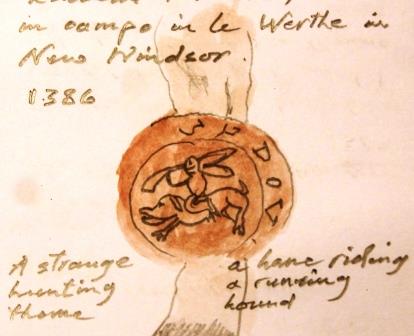 in campo in le Werthe in
New Windsor.
1386
A strange
hunting
theme
a hare riding
a running
hound